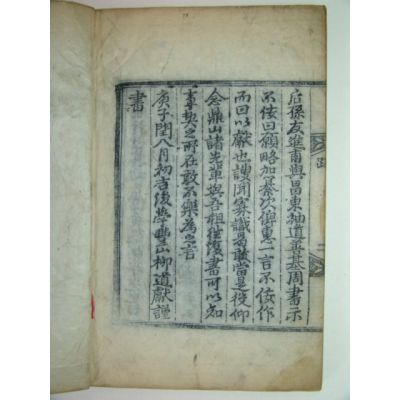 后孫友進甫與昌東袖道善基周書示
不佞曰願略加纂次俾惠一言不佞作
而曰以獻也謏聞寡識曷敢當是役仰
念鼎山諸先輩與吾祖往復書可以知
事契之所在敢不樂為之言
庚子閏八月初吉後學豊山柳道獻謹
書